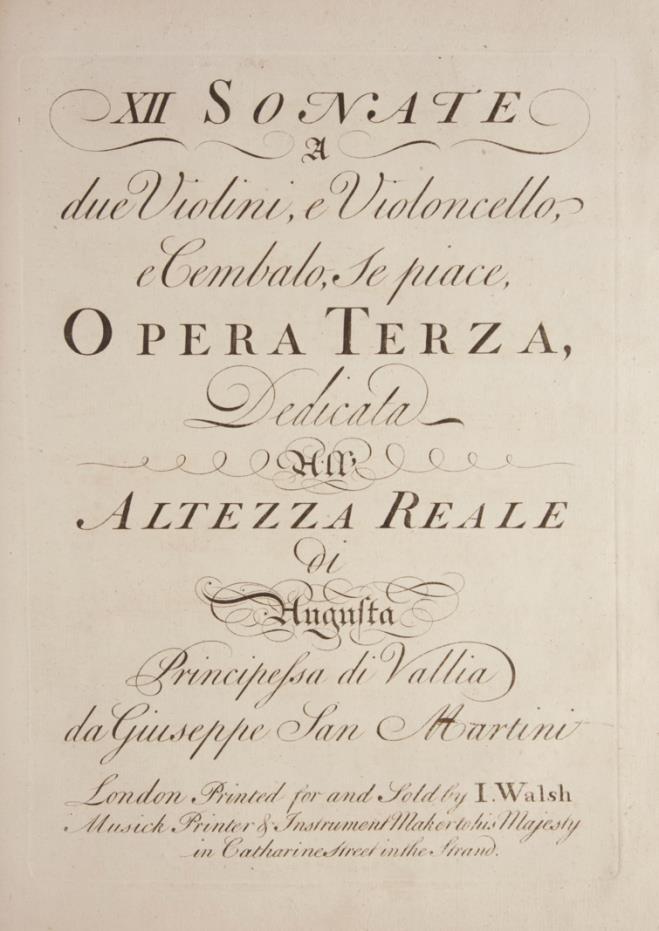 XII SONATE
A
due Violini, e Violoncello,
e Cembalo, Se piace,
OPERA TERZA,
Dedicata
All'
ALTEZZA REALE
di
Auguſta
Principeſsa di Vallia
da Giuseppe San Martini
London Printed for and Sold by I. Walsh
Musick Printer & Instrument Maker to his Majesty
in Catharine Street in the Strand.